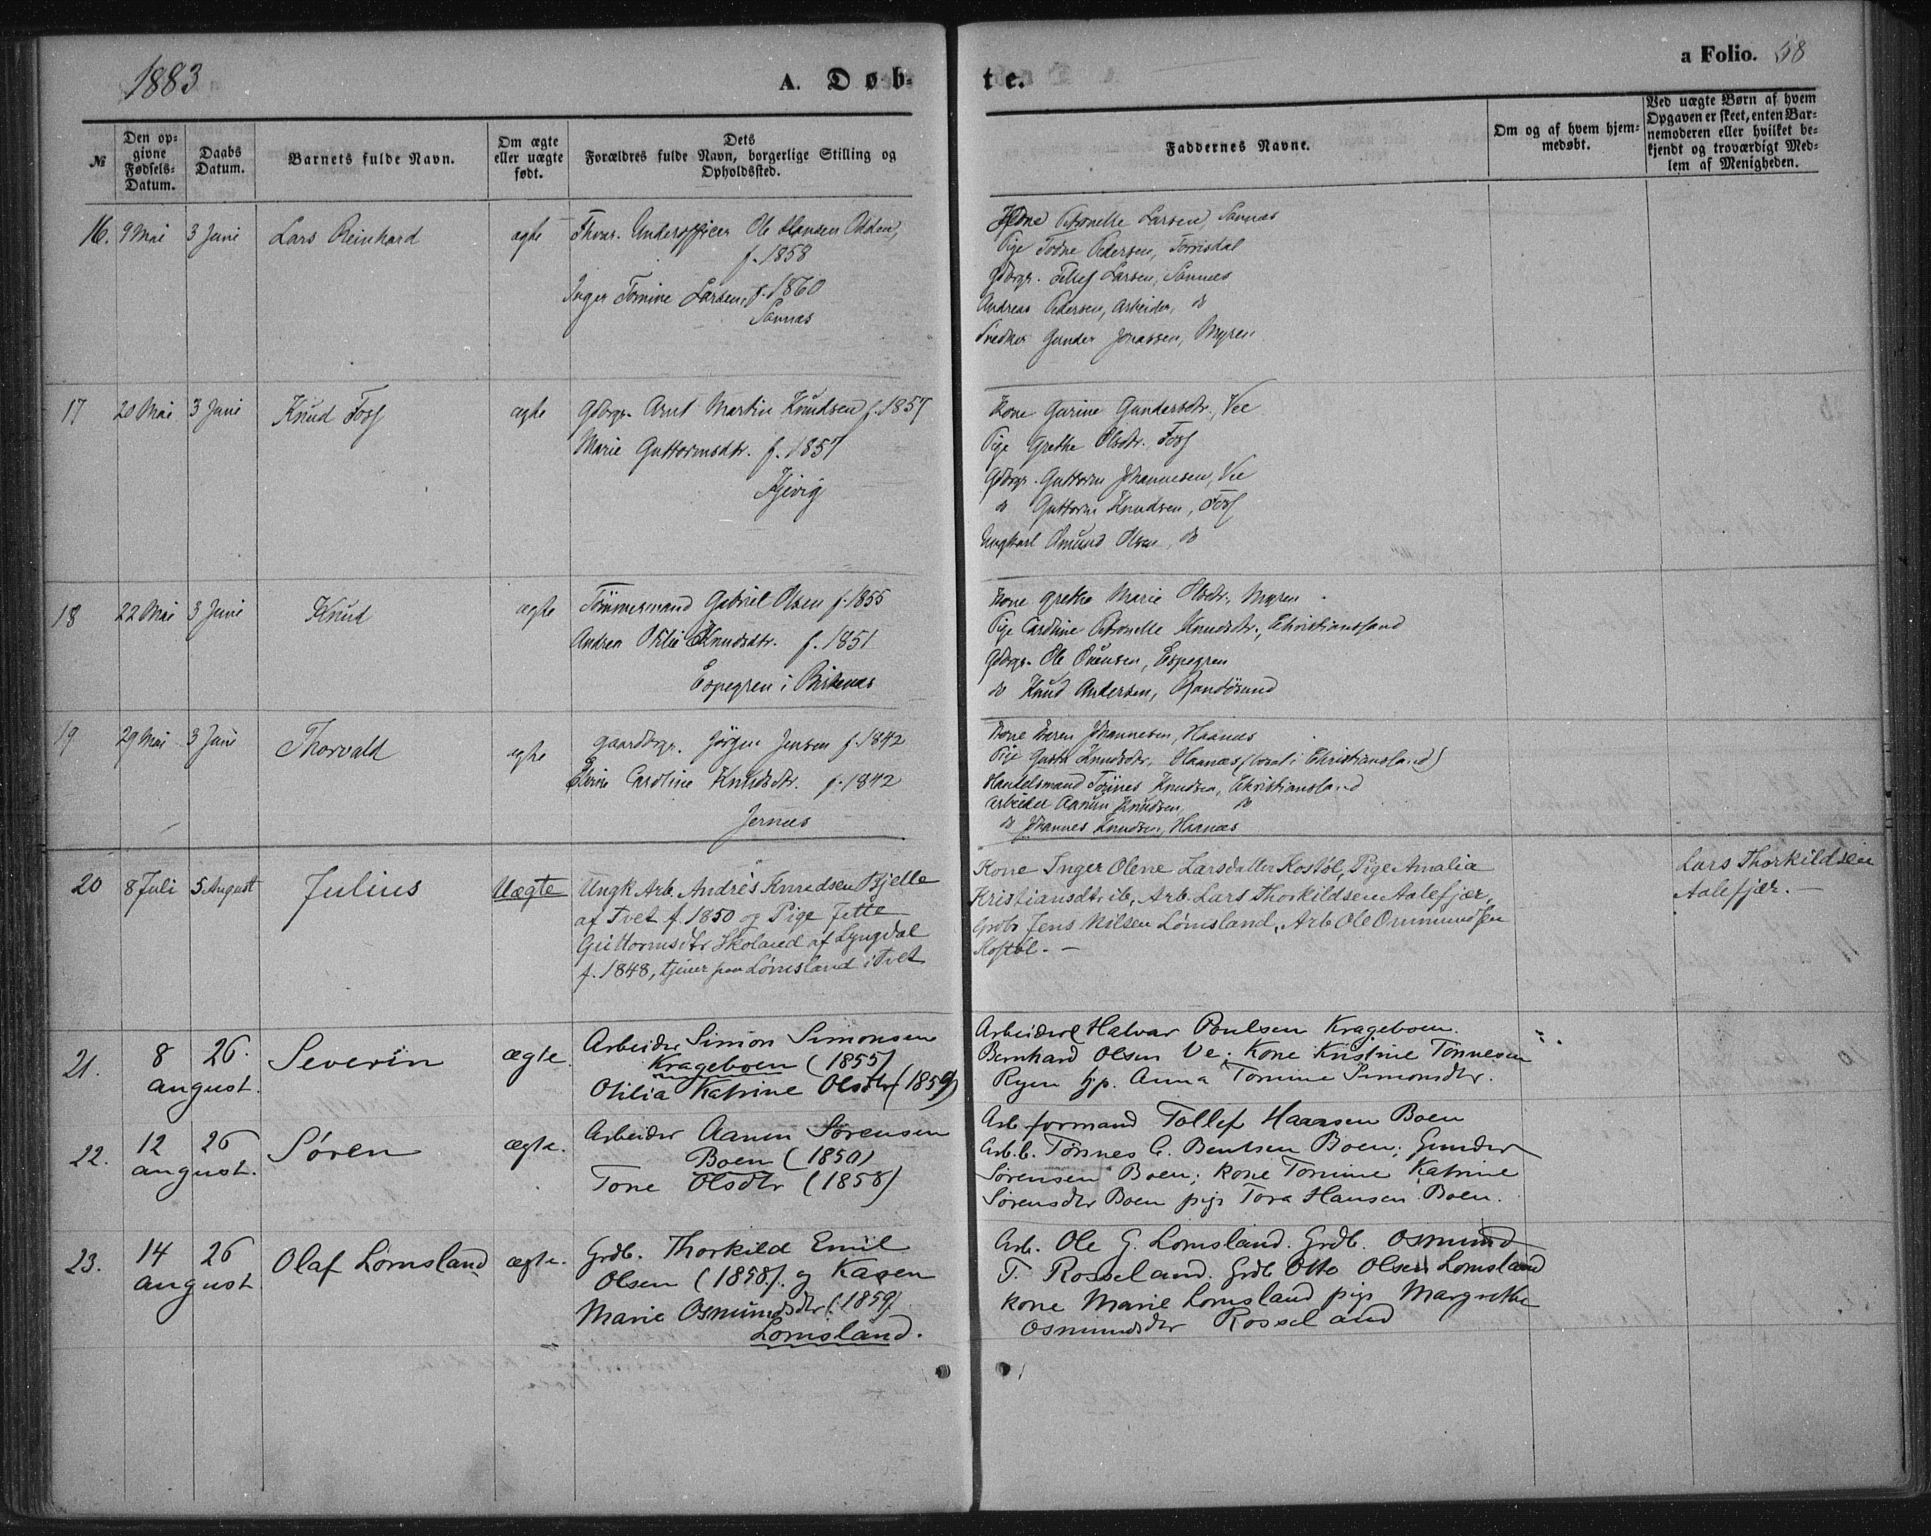 1883
A. Døb-
te.
a Folio. 58
№
Den op-
givne
Fødsels-
Datum.
Daabs
Datum.
Barnets fulde Navn.
Om ægte
eller uægte
født.
Dets
Forældres fulde Navn, borgerlige Stilling og
Opholdssted.
Faddernes Navne.
Om og af hvem hjem-
medøbt.
Ved uægte Børn af hvem
Opgaven er skeet, enten Bar-
nemoderen eller hvilket be-
kjendt og troværdigt Med-
lem af Menigheden.
16. 9 Mai 3 Juni Lars Reinhard ægte
Underofficer Ole Hansen Odden,
f. 1858
Inger Tomine Larsen, f. 1860
Sannæs
Kone Petronelle Larsen, Sannæs
Pige Todne Pedersen, Torrisdal
Gdbrgr. Tellef Larsen, Sannes
Andreas Pedersen, Arbeider, do
Snedker Gunder Jonassen, Myren
17 20 Mai 3 Juni Knud Foss ægte
Gdbrgr. Arnt Martin Knudsen f. 1857
Marie Guttormsdtr. f. 1857
Kjevig
Kone Gurine Gundersdtr., Vee
Pige Grethe Olsdtr. Foss
Gdbrgr. Guttorm Johannesen, Vee
do Guttorm Knudsen, Foss
Ungkarl Amund Olsen, do
18 22 Mai 3 Juni Knud ægte
Tømmermand Gabriel Olsen f. 1855
Andrea Otilie Knudsdtr. f. 1851
Espegren i Birkenæs
Kone Grethe Marie Olsdtr., Myren
Pige Caroline Petronelle Knudsdtr., Christianssand
Gdbrgr. Ole Ouensen, Espegren
do Knud Andersen, Randøsund
19 29 Mai 3 Juni Thorvald ægte
Gaardbrgr. Jørgen Jensen f. 1842
Elvine Caroline Knudsdtr. f. 1842
Jernæs
Kone Johannesen, Haanæs
Pige Gusta Knudsdtr. Haanæs i Christiansland)
Handelsmand Tønnes Knudsen, Christiansland
Arbeider Aanun Knudsen, do
do Johannes Knudsen, Haanæs
20 8 Juli 5 August Julius Uægte
Ungk Arb. Andrés Knudsen Bjelle
af Tvet f. 1850 og Pige Jette
Guttormsdtr Skoland af Lyngdal
f. 1848, tjener paa Lømsland i Tvet
Kone Inger Olene Larsdatter Kostøl, Pige Amalia
Kristiansdtr ib., Arb. Lars Thorkildsen Aalefjær,
Grdbr Jens Nilsen Lømsland, Arb Ole Ommundsen
Kostøl. —
Lars Thorkildsen
Aalefjær. —
21. 8 august. 26. Severin ægte.
Arbeider Simon Simonsen
Krageboen (1855)
Otilia Katrine Olsdtr (1859)
Arbeider Halvar Poulsen Krageboen.
Bernhard Olsen Ve; Kone Kristine Tønnesen
Ryen hp. Anna Tomine Simonsdtr.
22. 12 august. 26 Søren ægte.
Arbeider Aanen Sørensen
Boen (1850)
Tone Olsdtr (1858)
Arb formand Tollef Haansen Boen
Arb. b. Tønnes G. Bentsen Boen; Gunder
Sørensen Boen; kone Tomine Katrine
Sørensdtr Boen pige Tora Hansen Boen.
23. 14 august 26 Olaf Lømsland ægte.
Grdb. Thorkild Emil
Olsen (1858). og Karen
Marie Osmundsdtr (1859).
Lomsland.
Arb. Ole G. Lomsland. Grdb. Osmund
T. Rosseland. Grdb Otto Olsen Lomsland
kone Marie Lomsland pige Margrethe
Osmundsdtr Rosseland